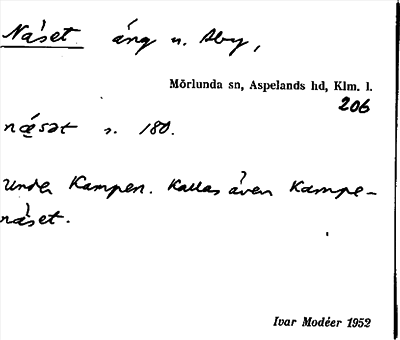 Näset äng u. Åby,
Mörlunda sn, Aspelands hd, Klm. l.
206
næ̀sət s. 180.
under Kampen. Kallas även Kampe-
näset.
Ivar Modéer 1952